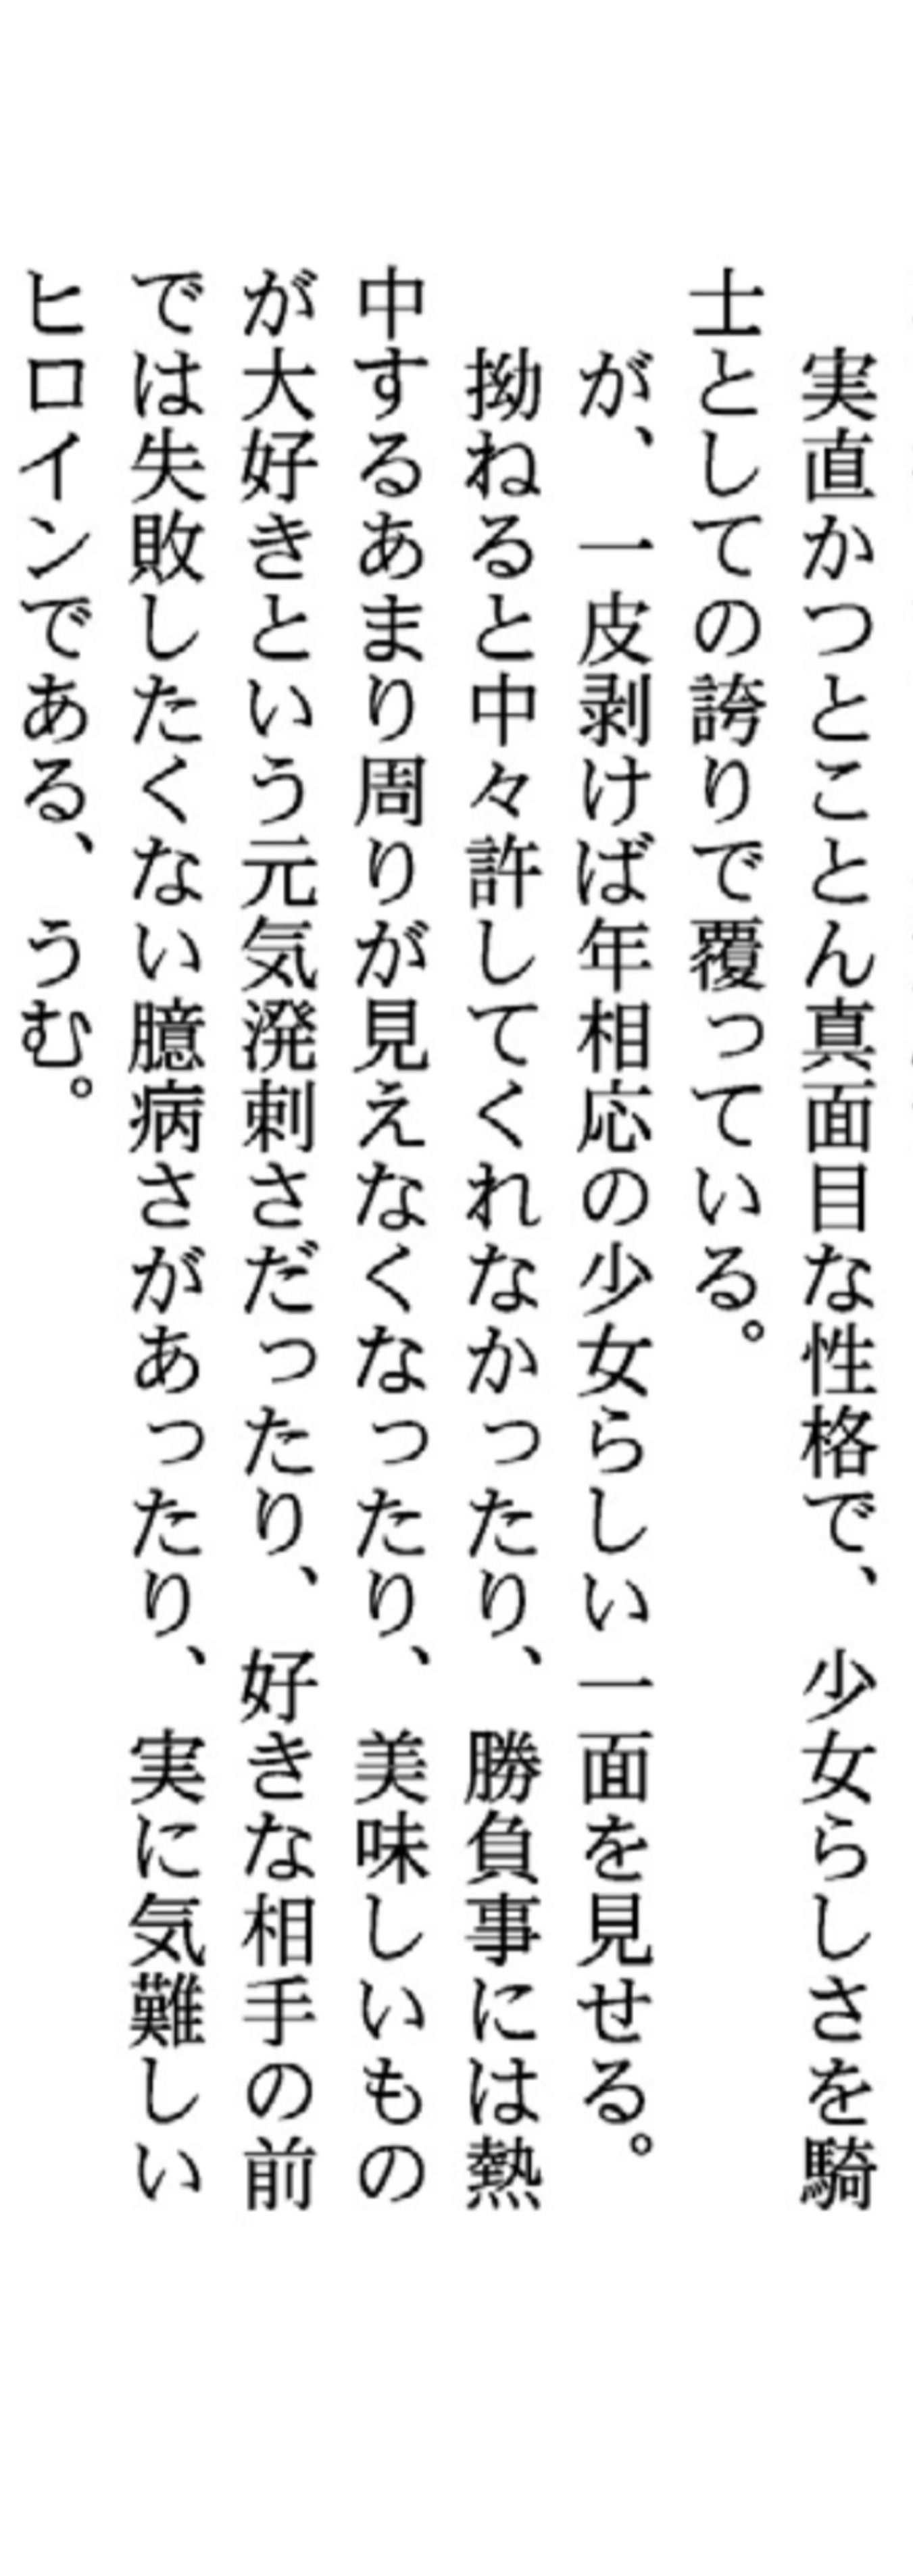 実直かつとことん真面目な性格で、少女らしさを騎
士としての誇りで覆っている。
が、一皮剥けば年相応の少女らしい一面を見せる。
拗ねると中々許してくれなかったり、勝負事には熱
中するあまり周りが見えなくなったり、美味しいもの
が大好きという元気溌剌さだったり、好きな相手の前
では失敗したくない臆病さがあったり、実に気難しい
ヒロインである、うむ。